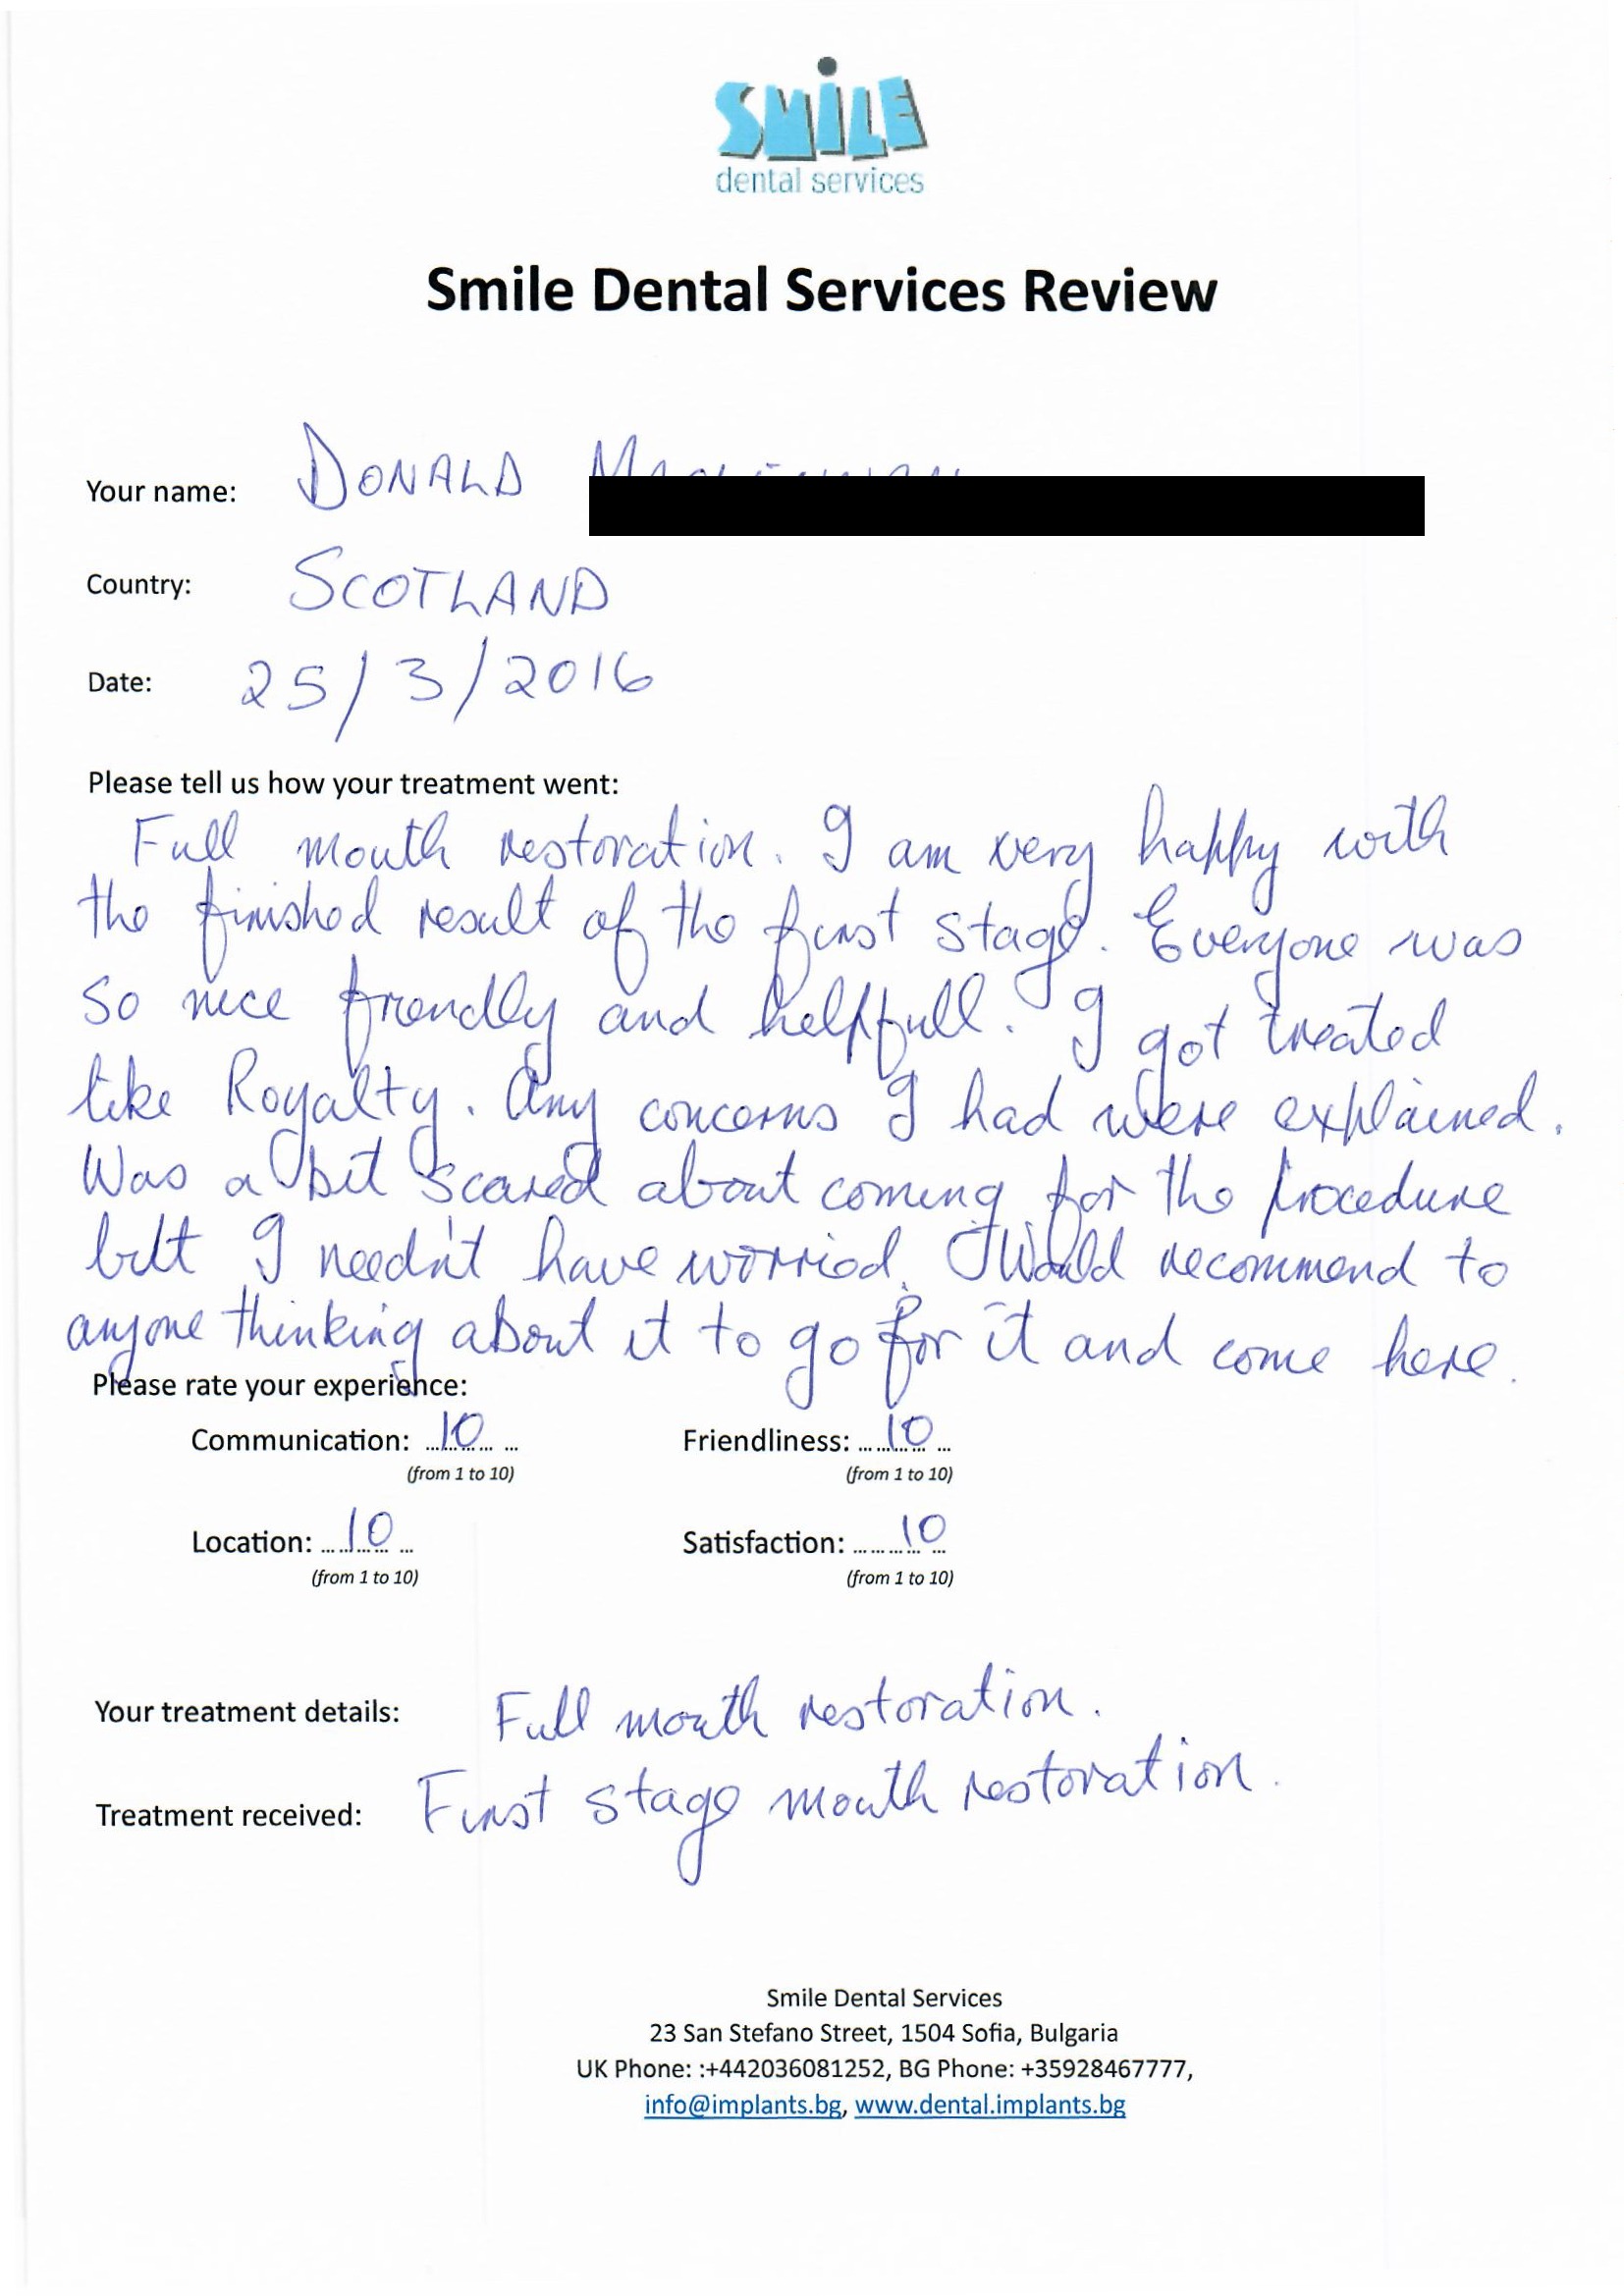 SMiLE
dental services
Smile Dental Services Review
Your name: DONALD
Country: SCOTLAND
Date: 25/3/2016
Please tell us how your treatment went:
Full mouth restoration. I am very happy with
the finished result of the first stage. Everyone was
so nice friendly and helpfull. I got treated
like Royalty. Any concerns I had were explained.
Was a bit scared about coming for the procedure
but I needn't have worried. I Would recommend to
anyone thinking about it to go for it and come here.
Please rate your experience:
Communication: 10 Friendliness: 10
(from 1 to 10) (from 1 to 10)
Location: 10 Satisfaction: 10
(from 1 to 10) (from 1 to 10)
Your treatment details: Full mouth restoration.
Treatment received: First stage mouth restoration.
Smile Dental Services
23 San Stefano Street, 1504 Sofia, Bulgaria
UK Phone: :+442036081252, BG Phone: +35928467777,
info@implants.bg, www.dental.implants.bg